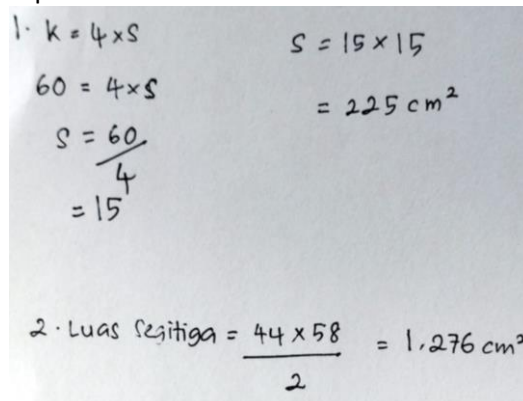 1. K = 4 × S
60 = 4 × S
S = 60/4
= 15
S = 15 × 15
= 225 cm²
2. Luas Segitiga = 44 × 58 / 2 = 1.276 cm²